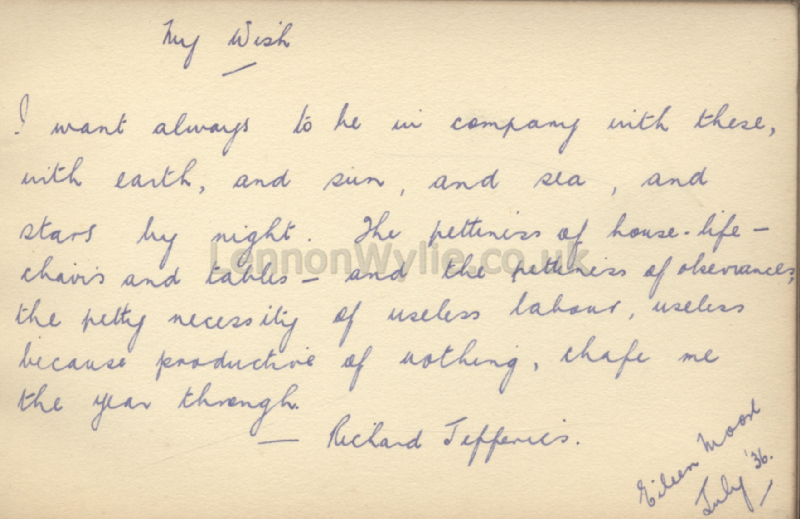 My Wish
I want always to be in company with these,
with earth, and sun, and sea, and
stars by night. The pettiness of house-life –
chairs and tables – and the pettiness of observances,
the petty necessity of useless labour, useless
because productive of nothing, chafe me
the year through.
— Richard Jefferies.
Eileen Moor
July '36.
LennonWylie.co.uk